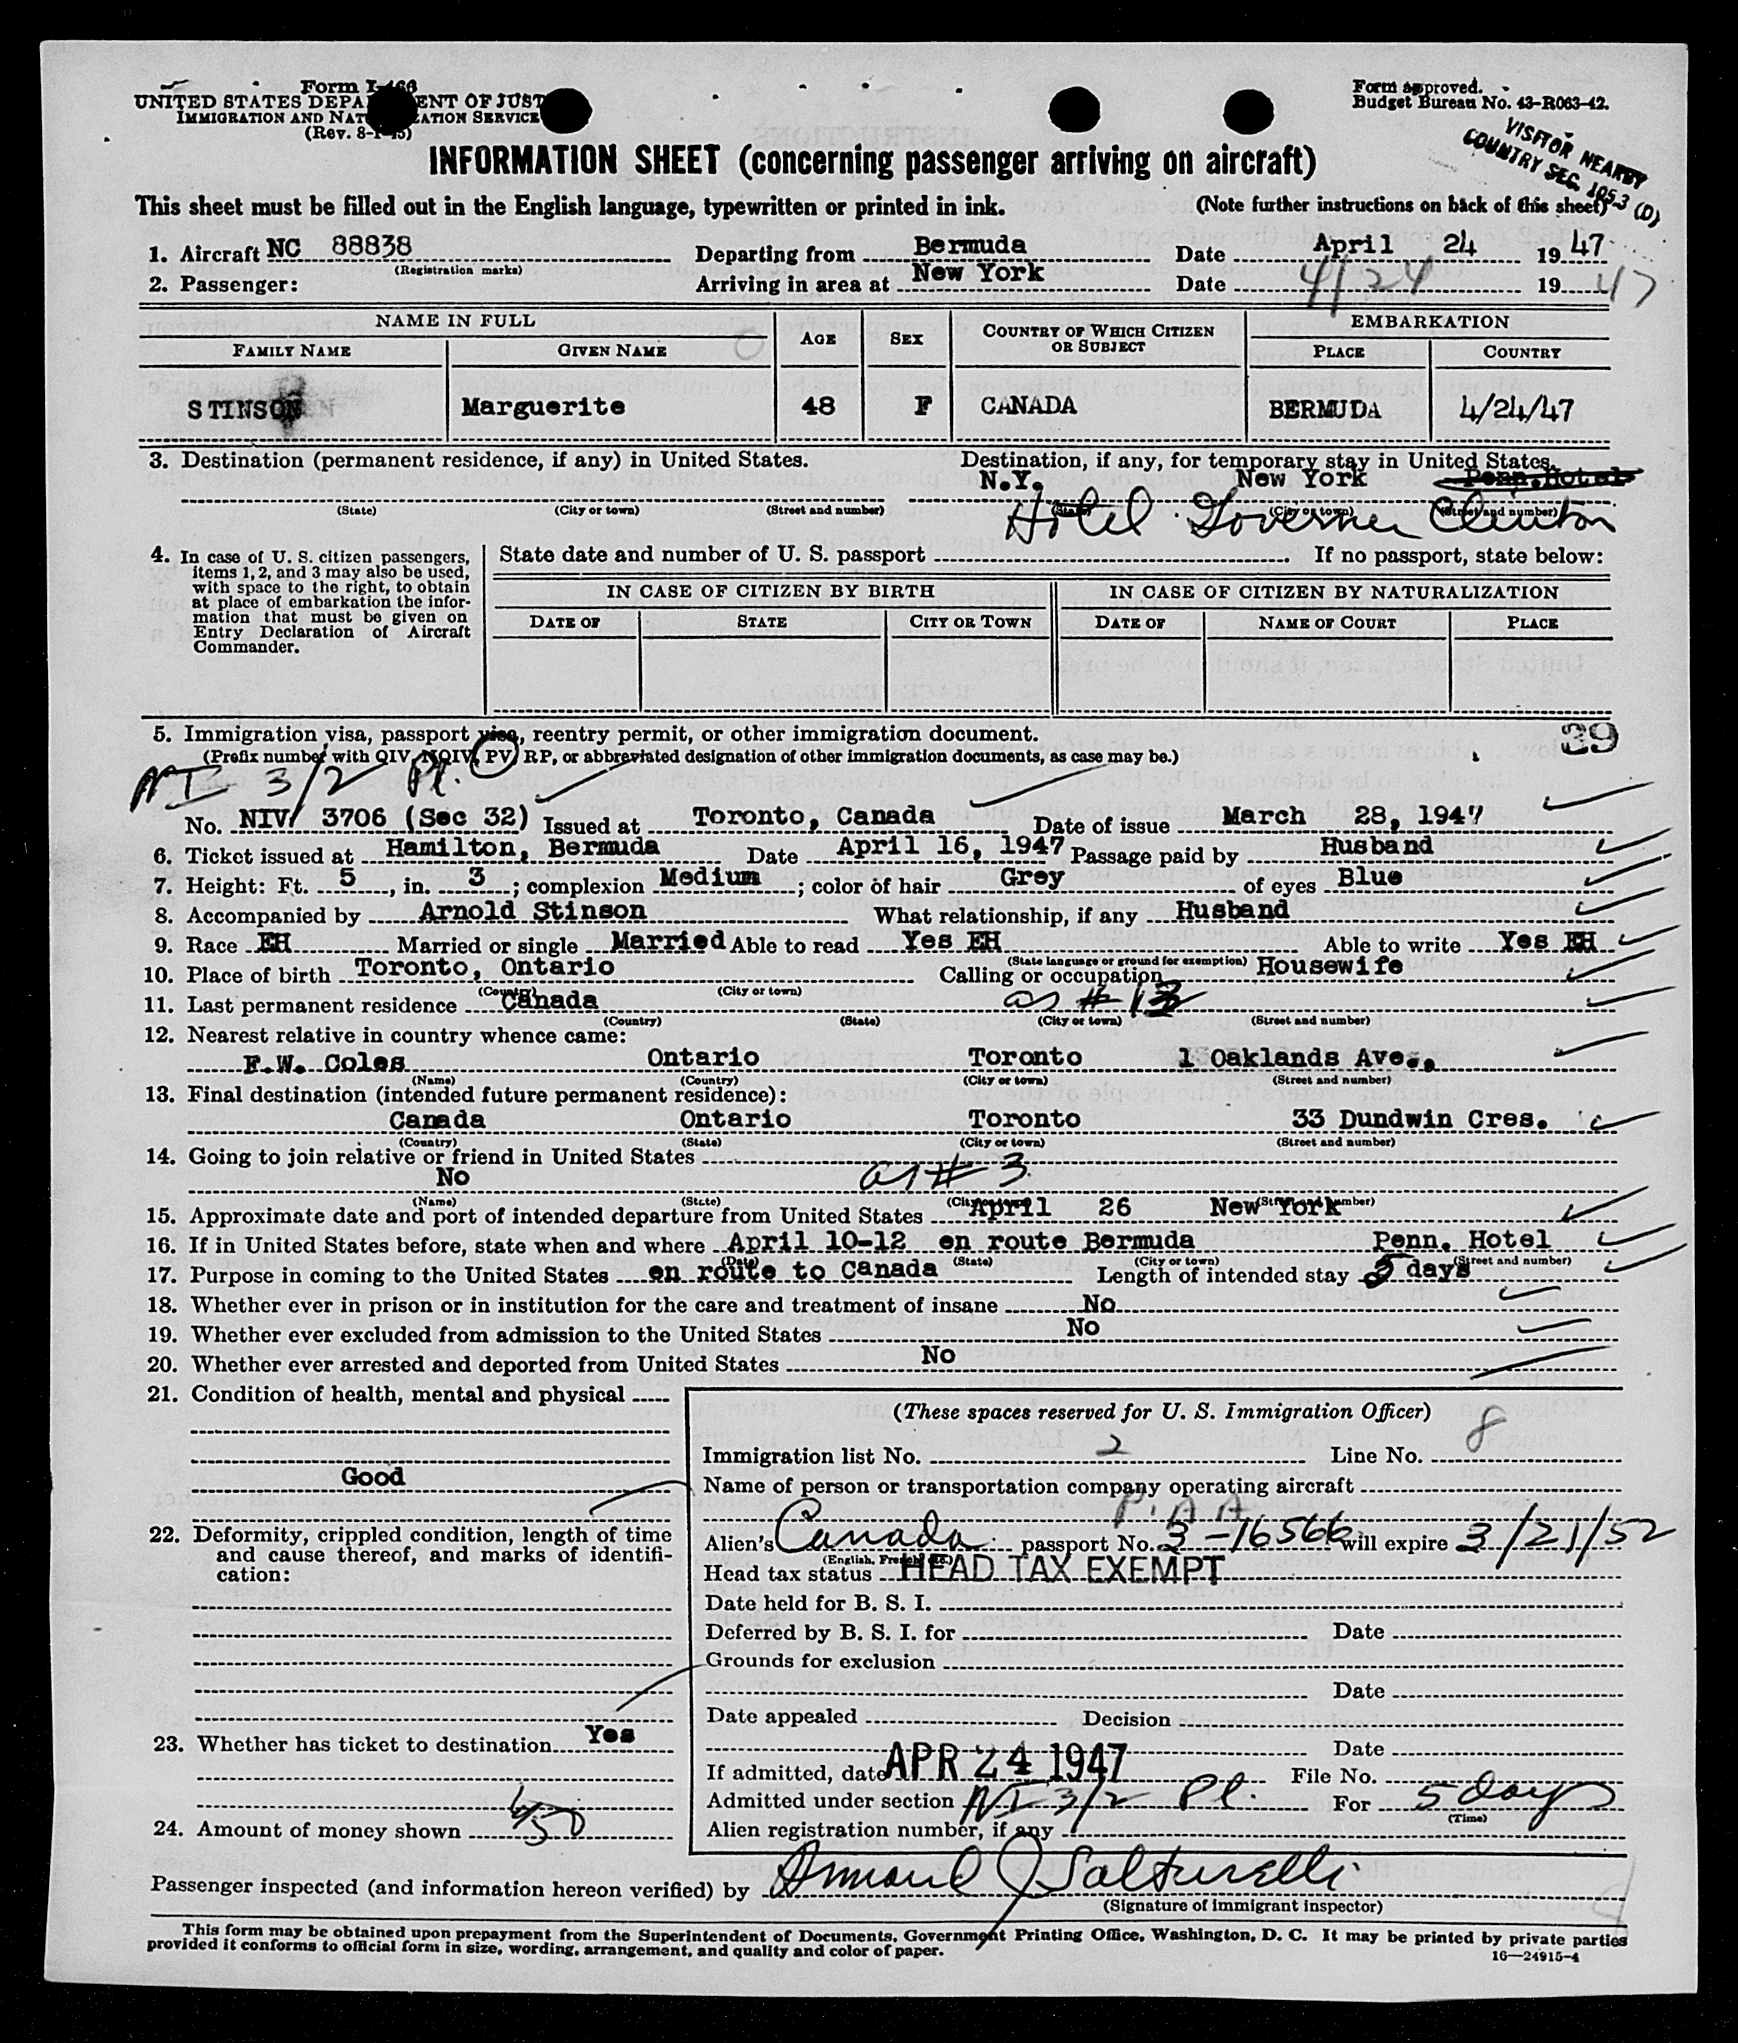 Form I-466
UNITED STATES DEPARTMENT OF JUSTICE
IMMIGRATION AND NATURALIZATION SERVICE
(Rev. 8-1-45)
Form approved.
Budget Bureau No. 43-R063-42.
VISITOR NEARBY
COUNTRY SEC. 105.3 (D)
INFORMATION SHEET (concerning passenger arriving on aircraft)
This sheet must be filled out in the English language, typewritten or printed in ink. (Note further instructions on back of this sheet)
1. Aircraft NC 88838 Departing from Bermuda Date April 24 1947
(Registration marks)
2. Passenger: Arriving in area at New York Date 4/24 1947
NAME IN FULL AGE SEX COUNTRY OF WHICH CITIZEN OR SUBJECT EMBARKATION
FAMILY NAME GIVEN NAME PLACE COUNTRY
STINSON Marguerite 48 F CANADA BERMUDA 4/24/47
3. Destination (permanent residence, if any) in United States. Destination, if any, for temporary stay in United States.
N.Y. New York Penn. Hotel
(State) (City or town) (Street and number) (State) (City or town) (Street and number)
Hotel Governer Clinton
4. In case of U. S. citizen passengers, items 1, 2, and 3 may also be used, with space to the right, to obtain at place of embarkation the information that must be given on Entry Declaration of Aircraft Commander.
State date and number of U. S. passport If no passport, state below:
IN CASE OF CITIZEN BY BIRTH IN CASE OF CITIZEN BY NATURALIZATION
DATE OF STATE CITY OR TOWN DATE OF NAME OF COURT PLACE
5. Immigration visa, passport visa, reentry permit, or other immigration document. 39
(Prefix number with QIV, NQIV, PV, RP, or abbreviated designation of other immigration documents, as case may be.)
NI 3/2 Pl.
No. NIV/ 3706 (Sec 32) Issued at Toronto, Canada Date of issue March 28, 1947
6. Ticket issued at Hamilton, Bermuda Date April 16, 1947 Passage paid by Husband
7. Height: Ft. 5, in. 3; complexion Medium; color of hair Grey of eyes Blue
8. Accompanied by Arnold Stinson What relationship, if any Husband
9. Race EH Married or single Married Able to read Yes EH Able to write Yes EH
(State language or ground for exemption)
10. Place of birth Toronto, Ontario Calling or occupation Housewife
(Country) (City or town)
11. Last permanent residence Canada as # 13
(Country) (State) (City or town) (Street and number)
12. Nearest relative in country whence came:
F.W. Coles Ontario Toronto 1 Oaklands Ave.,
(Name) (Country) (City or town) (Street and number)
13. Final destination (intended future permanent residence):
Canada Ontario Toronto 33 Dundwin Cres.
(Country) (State) (City or town) (Street and number)
14. Going to join relative or friend in United States
No as # 3
(Name) (State) (City or town) (Street and number)
15. Approximate date and port of intended departure from United States April 26 New York
16. If in United States before, state when and where April 10-12 en route Bermuda Penn. Hotel
(Date) (State) (City or town) (Street and number)
17. Purpose in coming to the United States en route to Canada Length of intended stay 5 days
18. Whether ever in prison or in institution for the care and treatment of insane No
19. Whether ever excluded from admission to the United States No
20. Whether ever arrested and deported from United States No
21. Condition of health, mental and physical
Good
22. Deformity, crippled condition, length of time and cause thereof, and marks of identification:
23. Whether has ticket to destination Yes
24. Amount of money shown 450
(These spaces reserved for U. S. Immigration Officer)
Immigration list No. 2 Line No. 8
Name of person or transportation company operating aircraft
P.A A
Alien's Canada passport No. 3-16566 will expire 3/21/52
(English, French, etc.)
Head tax status HEAD TAX EXEMPT
Date held for B. S. I.
Deferred by B. S. I. for Date
Grounds for exclusion
Date
Date appealed Decision
Date
If admitted, date APR 24 1947 File No.
Admitted under section NI 3/2 Pl. For 5 days
(Time)
Alien registration number, if any
Passenger inspected (and information hereon verified) by Armand J Salturelli
(Signature of immigrant inspector)
This form may be obtained upon prepayment from the Superintendent of Documents, Government Printing Office, Washington, D. C. It may be printed by private parties
provided it conforms to official form in size, wording, arrangement, and quality and color of paper.
16—24915-4